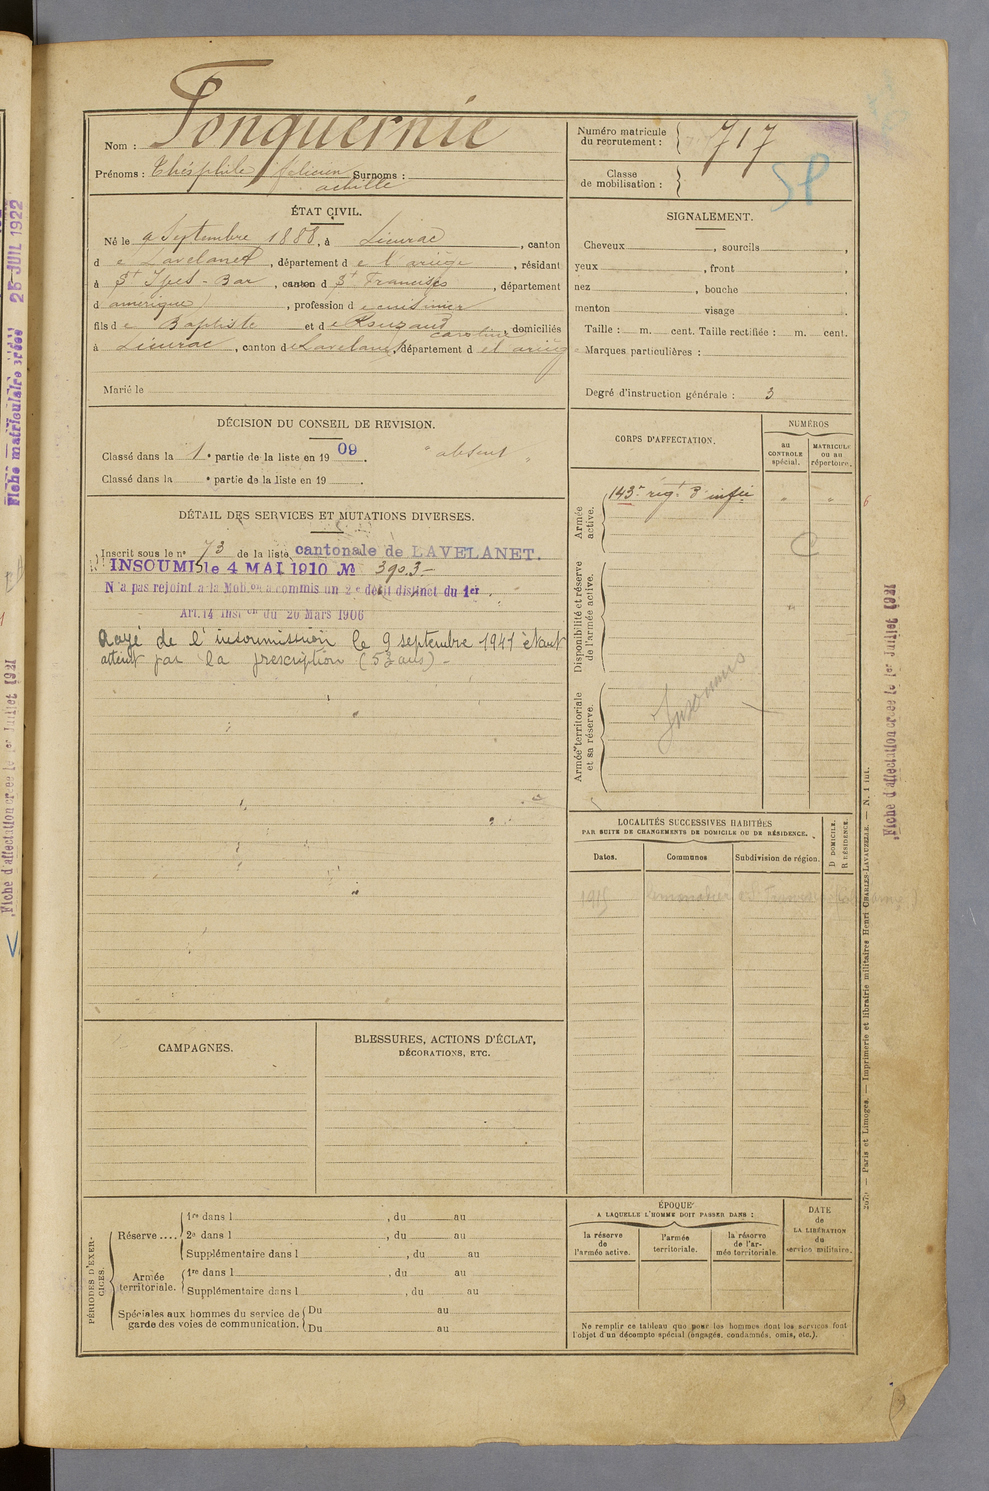 Nom : Fonquernie
Prénoms : Théophile félicien Surnoms :
achille
Numéro matricule
du recrutement : 717
Classe
de mobilisation :
SP
ÉTAT CIVIL.
Né le 9 Septembre 1888, à Lieurac, canton
d e Lavelanet, département d e l'ariège, résidant
à St Ypes - Bar, canton d St Francisco, département
d amérique, profession d e cuisinier
fils d e Baptiste et d e Rouzaud caroline, domiciliés
à Lieurac, canton d e Lavelanet, département d el ariège
Marié le
SIGNALEMENT.
Cheveux , sourcils ,
yeux , front ,
nez , bouche ,
menton visage .
Taille : m. cent. Taille rectifiée : m. cent.
Marques particulières :
Degré d'instruction générale : 3
DÉCISION DU CONSEIL DE REVISION.
Classé dans la 1e partie de la liste en 1909. " absent "
Classé dans la e partie de la liste en 19 .
DÉTAIL DES SERVICES ET MUTATIONS DIVERSES.
Inscrit sous le no 73 de la liste cantonale de LAVELANET.
INSOUMIS le 4 MAI 1910 No 390.3-
N'a pas rejoint à la Mobon a commis un 2e délit distinct du 1er.
Art.14 Inston du 20 Mars 1906
Rayé de l'insoumission le 9 septembre 1941 étant
atteint par la prescription (53 ans) -
CORPS D'AFFECTATION.
NUMÉROS
au
CONTROLE
spécial.
MATRICULE
ou au
répertoire.
Armée
active.
143e régt d'infie " "
Disponibilité et réserve
de l'armée active.
Armée territoriale
et sa réserve.
Insoumis
LOCALITÉS SUCCESSIVES HABITÉES
PAR SUITE DE CHANGEMENTS DE DOMICILE OU DE RÉSIDENCE.
D DOMICILE.
R RÉSIDENCE.
Dates. Communes Subdivision de région.
CAMPAGNES.
BLESSURES, ACTIONS D'ÉCLAT,
DÉCORATIONS, ETC.
PÉRIODES D'EXERCICES.
Réserve....
1re dans l , du au
2e dans l , du au
Supplémentaire dans l , du au
Armée
territoriale.
1re dans l , du au
Supplémentaire dans l , du au
Spéciales aux hommes du service de
garde des voies de communication.
Du au
Du au
ÉPOQUE
A LAQUELLE L'HOMME DOIT PASSER DANS :
la réserve
de
l'armée active.
l'armée
territoriale.
la réserve
de l'armée territoriale.
DATE
de
LA LIBÉRATION
du
service militaire.
Ne remplir ce tableau que pour les hommes dont les services font
l'objet d'un décompte spécial (engagés, condamnés, omis, etc.).
Paris et Limoges. — Imprimerie et librairie militaires Henri CHARLES-LAVAUZELLE. — N. 1 int.
Fiche d'affectation créée le 1er Juillet 1921
Fiche matriculaire créée 25 JUIL 1922
Fiche d'affectation créée le 1er Juillet 1921